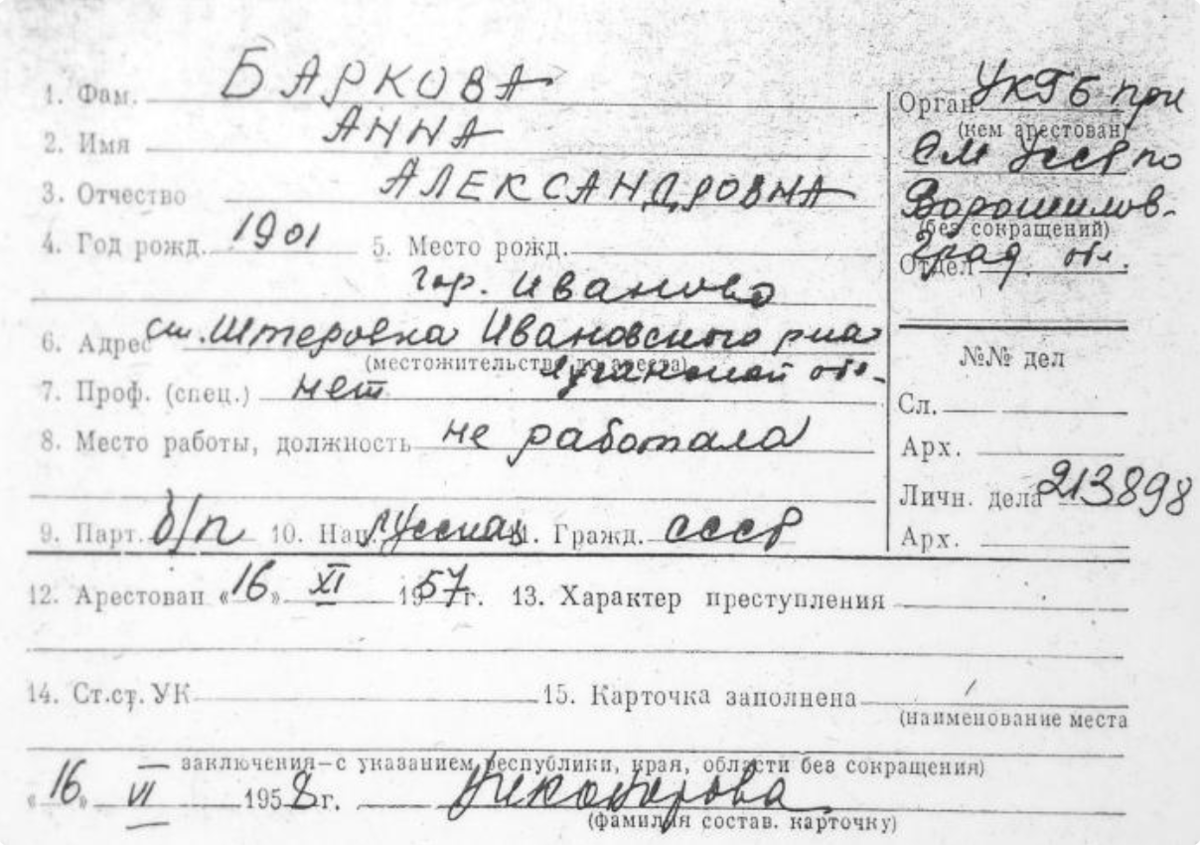 1. Фам. БАРКОВА
2. Имя АННА
3. Отчество АЛЕКСАНДРОВНА
4. Год рожд. 1901 5. Место рожд.
гор. Иваново
6. Адрес ст. Штеровка Ивановского р-на
(местожительство до ареста)
Луганской обл.
7. Проф. (спец.) нет
8. Место работы, должность не работала
9. Парт. б/п 10. Нац. русская 11. Гражд. СССР
Орган УКГБ при
(кем арестован)
СМ УССР по
Ворошилов-
(без сокращений)
град. обл.
Отдел
№№ дел
Сл.
Арх.
Личн. дела 213898
Арх.
12. Арестован «16» XI 1957г. 13. Характер преступления
14. Ст.ст. УК 15. Карточка заполнена
(наименование места
заключения–с указанием республики, края, области без сокращения)
«16» VI 1958г.
(фамилия состав. карточку)